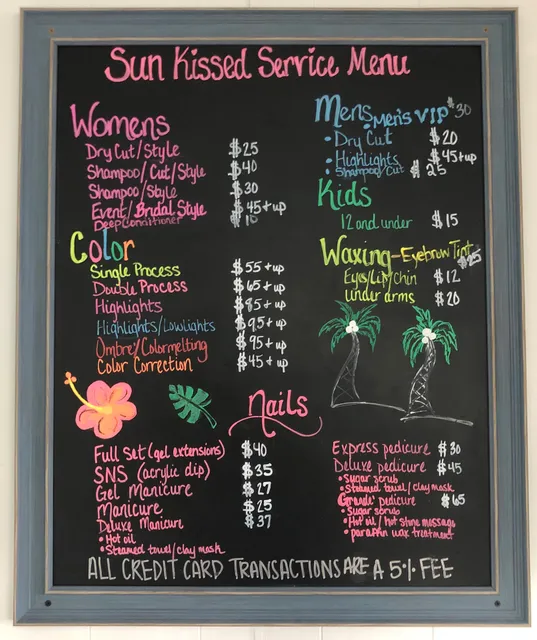 Sun Kissed Service Menu
Womens
Dry Cut/Style $25
Shampoo/Cut/Style $40
Shampoo/Style $30
Event/Bridal Style $45+up
Deep Conditioner $10
Color
Single Process $55+up
Double Process $65+up
Highlights $85+up
Highlights/Lowlights $95+up
Ombre'/Colormelting $95+up
Color Correction $45+up
Mens • Men's VIP $30
• Dry Cut $20
• Highlights $45+up
Shampoo/Cut $25
Kids
12 and under $15
Waxing - Eyebrow Tint $25
Eyes/Lip/Chin $12
under arms $20
Nails
Full Set (gel extensions) $40
SNS (acrylic dip) $35
Gel Manicure $27
Manicure $25
Deluxe Manicure $37
• Hot oil
• Steamed towel/clay mask
Express pedicure $30
Deluxe pedicure $45
• Sugar scrub
• Steamed towel/clay mask
Grande' pedicure $65
• Sugar scrub
• Hot oil/hot stone message
• paraffin wax treatment
ALL CREDIT CARD TRANSACTIONS ARE A 5% FEE